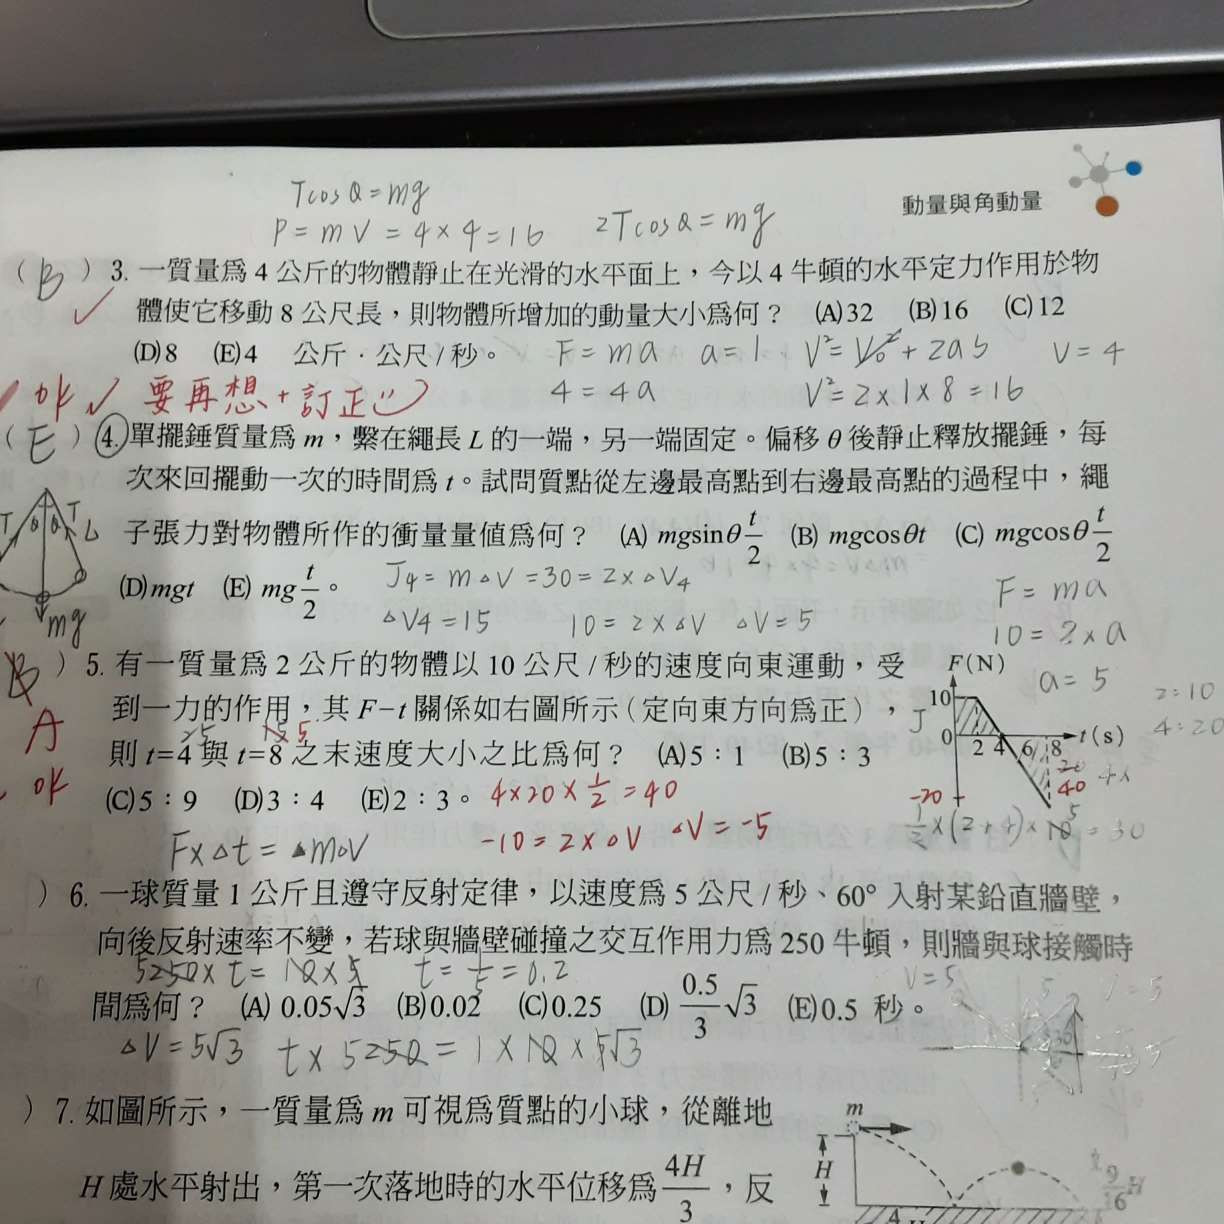 Tcosθ=mg
動量與角動量
P=mV=4×4=16 2Tcosθ=mg
(B) 3. 一質量為 4 公斤的物體靜止在光滑的水平面上，今以 4 牛頓的水平定力作用於物
體使它移動 8 公尺長，則物體所增加的動量大小為何？ (A)32 (B)16 (C)12
(D)8 (E)4 公斤．公尺/秒。 F=ma a=1 V²=V₀²+2aS V=4
4=4a V²=2×1×8=16
ok ✓ 要再想+訂正
(E) 4. 單擺錘質量為 m，繫在繩長 L 的一端，另一端固定。偏移 θ 後靜止釋放擺錘，每
次來回擺動一次的時間為 t。試問質點從左邊最高點到右邊最高點的過程中，繩
T θ θ T L
子張力對物體所作的衝量量值為何？ (A) mgsinθ t/2 (B) mgcosθt (C) mgcosθ t/2
(D) mgt (E) mg t/2。 J4=m△V=30=2×△V4 F=ma
mg
△V4=15 10=2×△V △V=5 10=2×a
(B) 5. 有一質量為 2 公斤的物體以 10 公尺/秒的速度向東運動，受 F(N) a=5
到一力的作用，其 F-t 關係如右圖所示（定向東方向為正）， 10 J 2:10
A 25 15 5 4:20
則 t=4 與 t=8 之末速度大小之比為何？ (A)5：1 (B)5：3 0 2 4 6 8 t(s)
ok (C)5：9 (D)3：4 (E)2：3。 4×20×1/2=40 -20 20 40
F×△t=△m△V -10=2×△V △V=-5 1/2×(2+4)×10=30
) 6. 一球質量 1 公斤且遵守反射定律，以速度為 5 公尺/秒、60° 入射某鉛直牆壁，
向後反射速率不變，若球與牆壁碰撞之交互作用力為 250 牛頓，則牆與球接觸時
5250×t=10×5 t=1/5=0.2 V=5
間為何？ (A) 0.05√3 (B)0.02 (C)0.25 (D) 0.5/3 √3 (E)0.5 秒。
△V=5√3 t×5250=1×10×5√3
) 7. 如圖所示，一質量為 m 可視為質點的小球，從離地 m
H 處水平射出，第一次落地時的水平位移為 4H/3，反 H 9/16 H